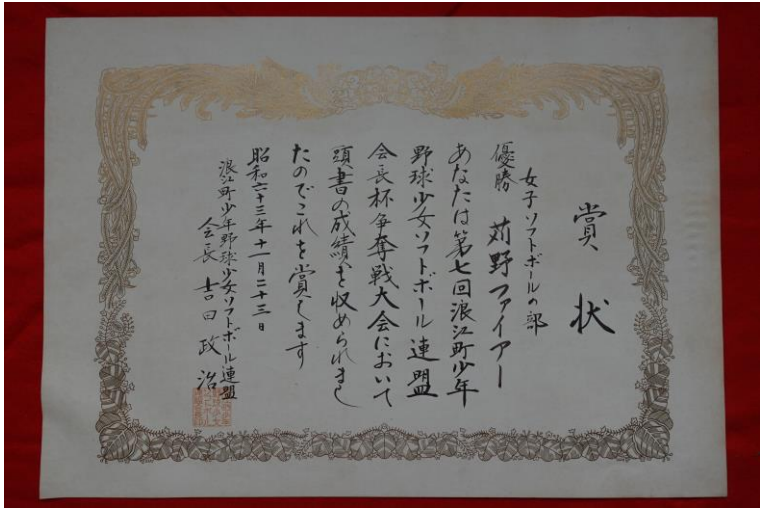 賞状
女子ソフトボールの部
優勝 苅野ファイアー
あなたは第七回浪江町少年
野球少女ソフトボール連盟
会長杯争奪戦大会において
頭書の成績を収められまし
たのでこれを賞します
昭和六十三年十一月二十三日
浪江町少年野球少女ソフトボール連盟
会長 吉田政治